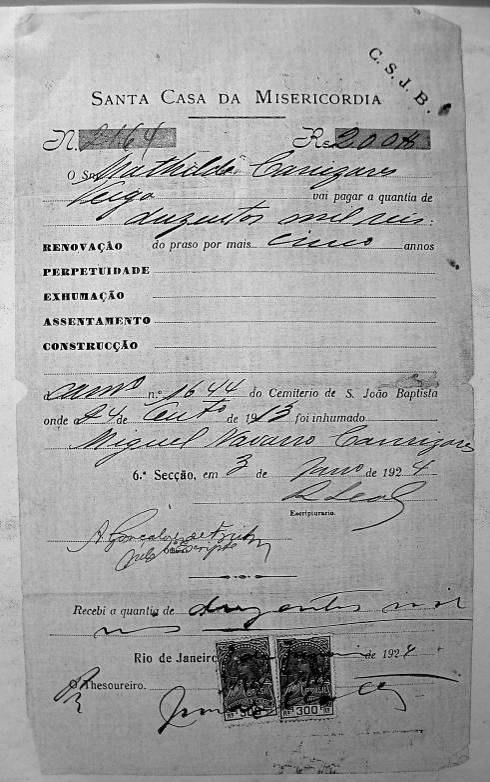 C. S. J. B.
SANTA CASA DA MISERICORDIA
N. 2164 Rs 200$
O Snr. Mathilde Canizares
Veiga vai pagar a quantia de
duzentos mil reis:
RENOVAÇÃO do praso por mais cinco annos
PERPETUIDADE
EXHUMAÇÃO
ASSENTAMENTO
CONSTRUCÇÃO
carn° n.° 1644 do Cemiterio de S. João Baptista
onde 24 de de 1913 foi inhumado
Miguel Navarro Canizares
6.ª Secção, em 3 de de 1924
R Leal
Escripturario.
A. Gonçalves
Recebi a quantia de duzentos mil
reis
Rio de Janeiro, de 1924
O Thesoureiro.
BRASIL
300 300